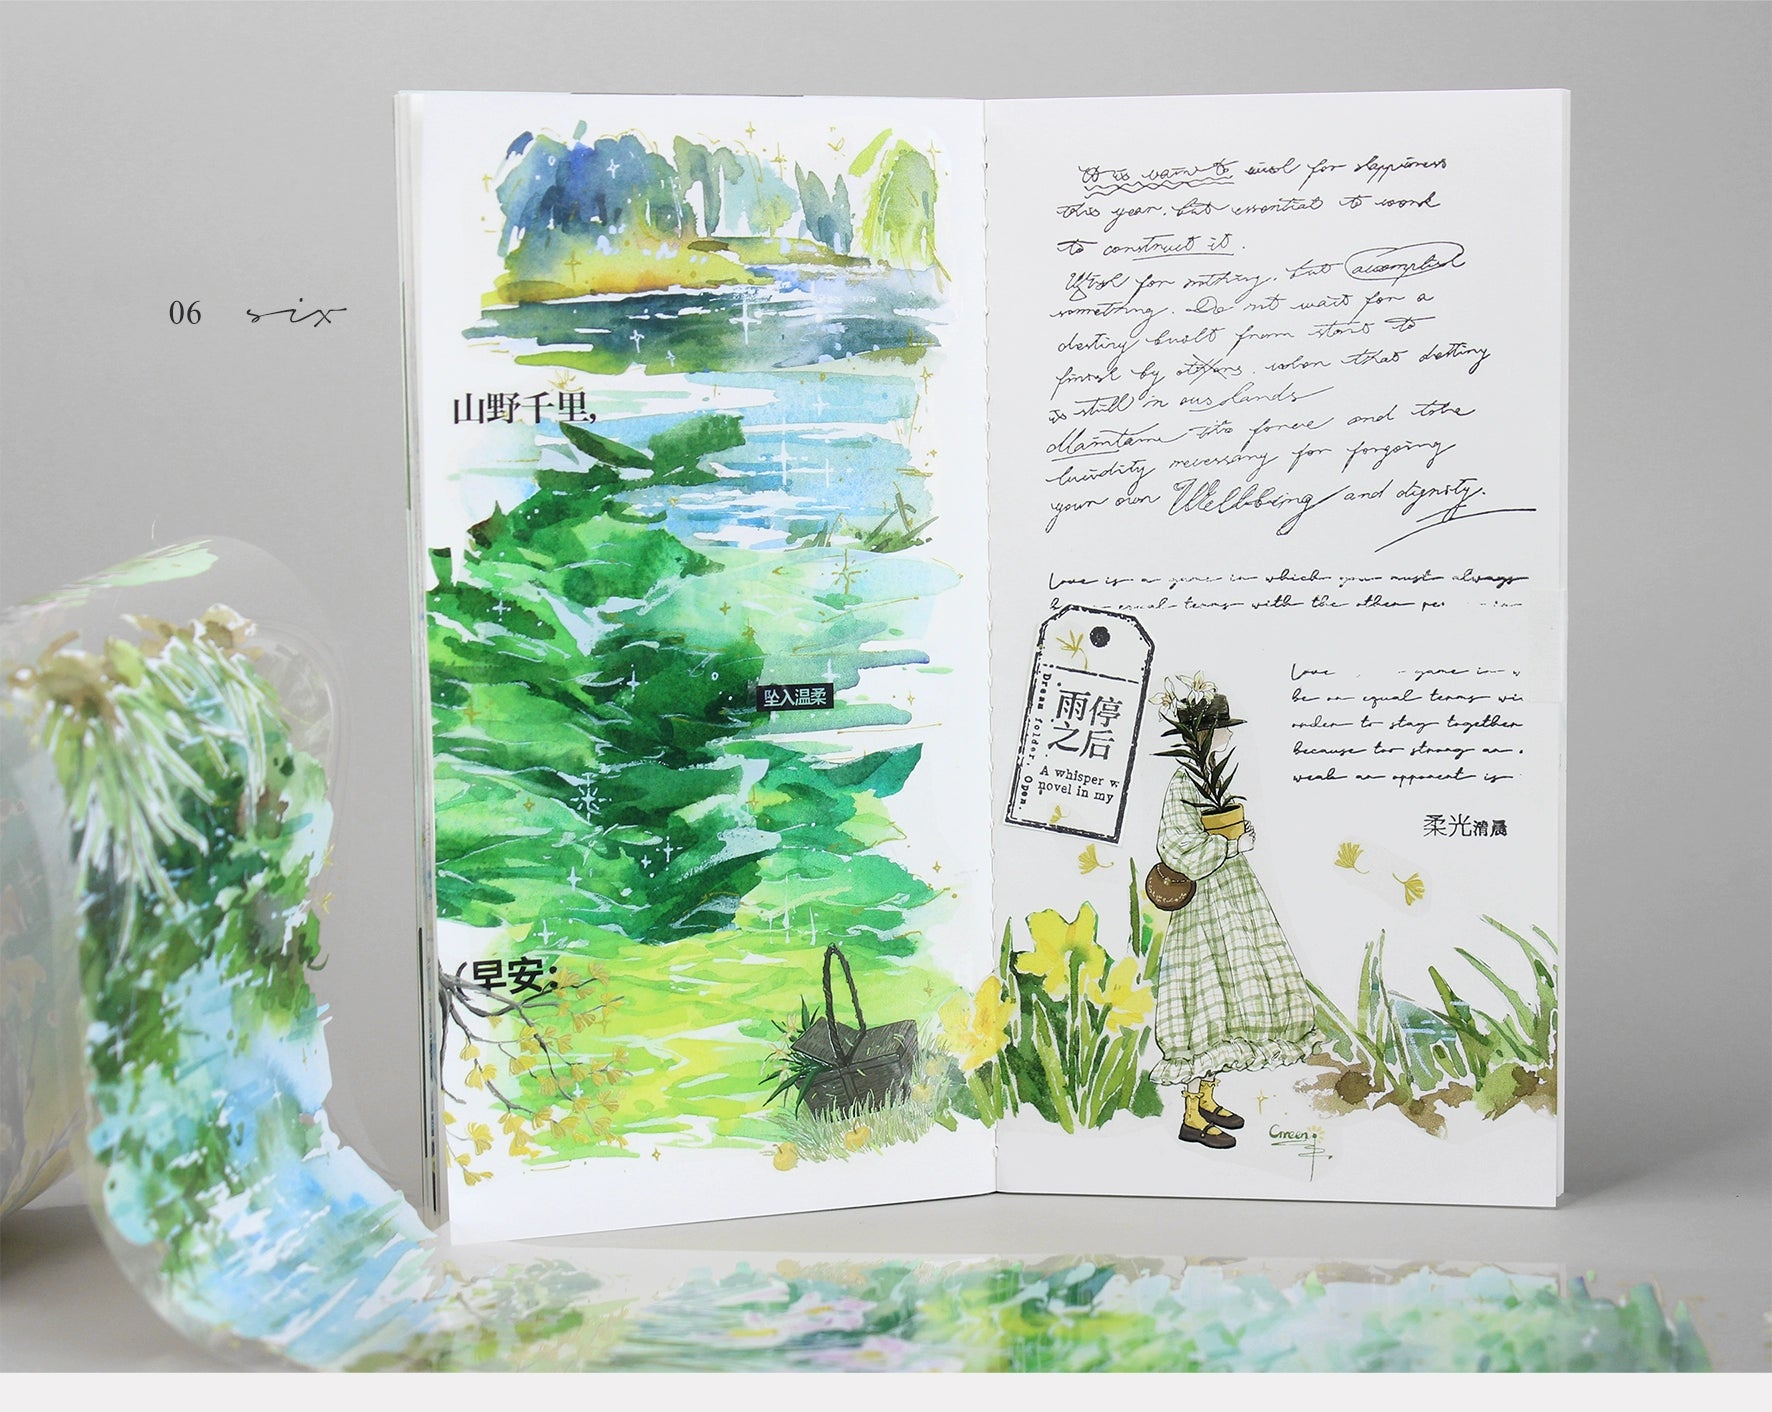 06 six
山野千里,
坠入温柔
(早安;
It is vain to wish for happiness
this year, but essential to work
to construct it.
Wish for nothing, but accomplish
something. Do not wait for a
destiny built from start to
finish by others, when that destiny
is still in our hands
Maintain the force and the
lucidity necessary for forgoing
your own Wellbeing and dignity.
Love is a game in which you must always
equal terms with the other
Dream folder. Open.
雨停
之后
A whisper w
novel in my
Love game in
be on equal terms wi
order to stay together
because too strong an
weak an opponent is
柔光清晨
Green